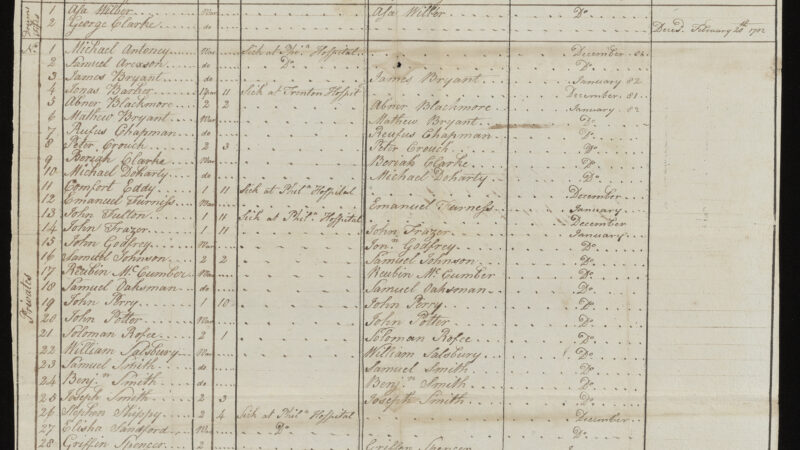 1 Asa Wilber War Asa Wilber Do
2 George Clarke do Deced. February 20th 1782
1 Michael Antoney War Sick at Phia. Hospital December 82
2 Samuel Areason do Do Do
3 James Bryant do James Bryant January 82
4 Jonas Barker 11 Sick at Trenton Hospit December 81
5 Abner Blackmore 2 2 Abner Blackmore January 82
6 Mathew Bryant War Mathew Bryant Do
7 Rufus Chapman do Reufus Chapman Do
8 Peter Crouch 2 3 Peter Crouch Do
9 Beriah Clarke War Beriah Clarke Do
10 Michael Doharty do Michael Doharty Do
11 Comfort Eddy 1 11 Sick at Phila. Hospital December
12 Emanuel Furniss War Emanuel Furness January
13 John Fulton 1 11 Sick at Phila. Hospital December
14 John Frazor 1 11 John Frazor January
15 John Godfrey War Jonn Godfrey Do
16 Samuel Johnson 2 2 Samuel Johnson Do
17 Reubin McCumber War Reubin McCumber Do
18 Samuel Oaksman do Samuel Oaksman Do
19 John Perry 1 10 John Perry Do
20 John Potter War John Potter Do
21 Soloman Rofee 2 1 Soloman Rofee Do
22 William Salsbury War William Salsbury Do
23 Samuel Smith do Samuel Smith Do
24 Benjn Smith do Benjn Smith Do
25 Joseph Smith 2 3 Joseph Smith Do
26 Stephen Shippy 2 4 Sick at Phila. Hospital December
27 Elisha Sandford War Do Do
28 Griffin Spencer 2 Griffen Spencer
Privates